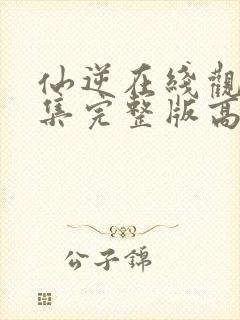 仙逆在綫觀
集完整版高
公子錦